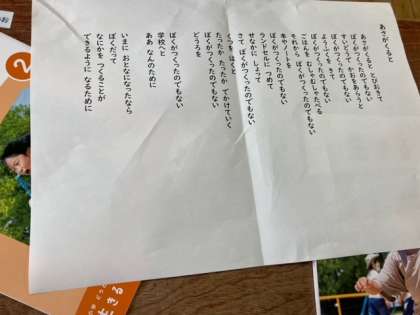 あさがくると
あさがくると とびおきて
ぼくがつくったのでもない
すいどうで かおをあらうと
ぼくがつくったのでもない
ようふくを きて
ぼくがつくったのでもない
ごはんを むしゃむしゃたべる
それから ぼくがつくったのでもない
本やノートを
ぼくがつくったのでもない
ランドセルに つめて
せなかに しょって
さて ぼくがつくったのでもない
くつを はくと
たったか たったか でかけていく
ぼくがつくったのでもない
どうろを
ぼくがつくったのでもない
学校へと
ああ なんのために
いまに おとなになったなら
ぼくだって
なにかを つくることが
できるように なるために
2
きる